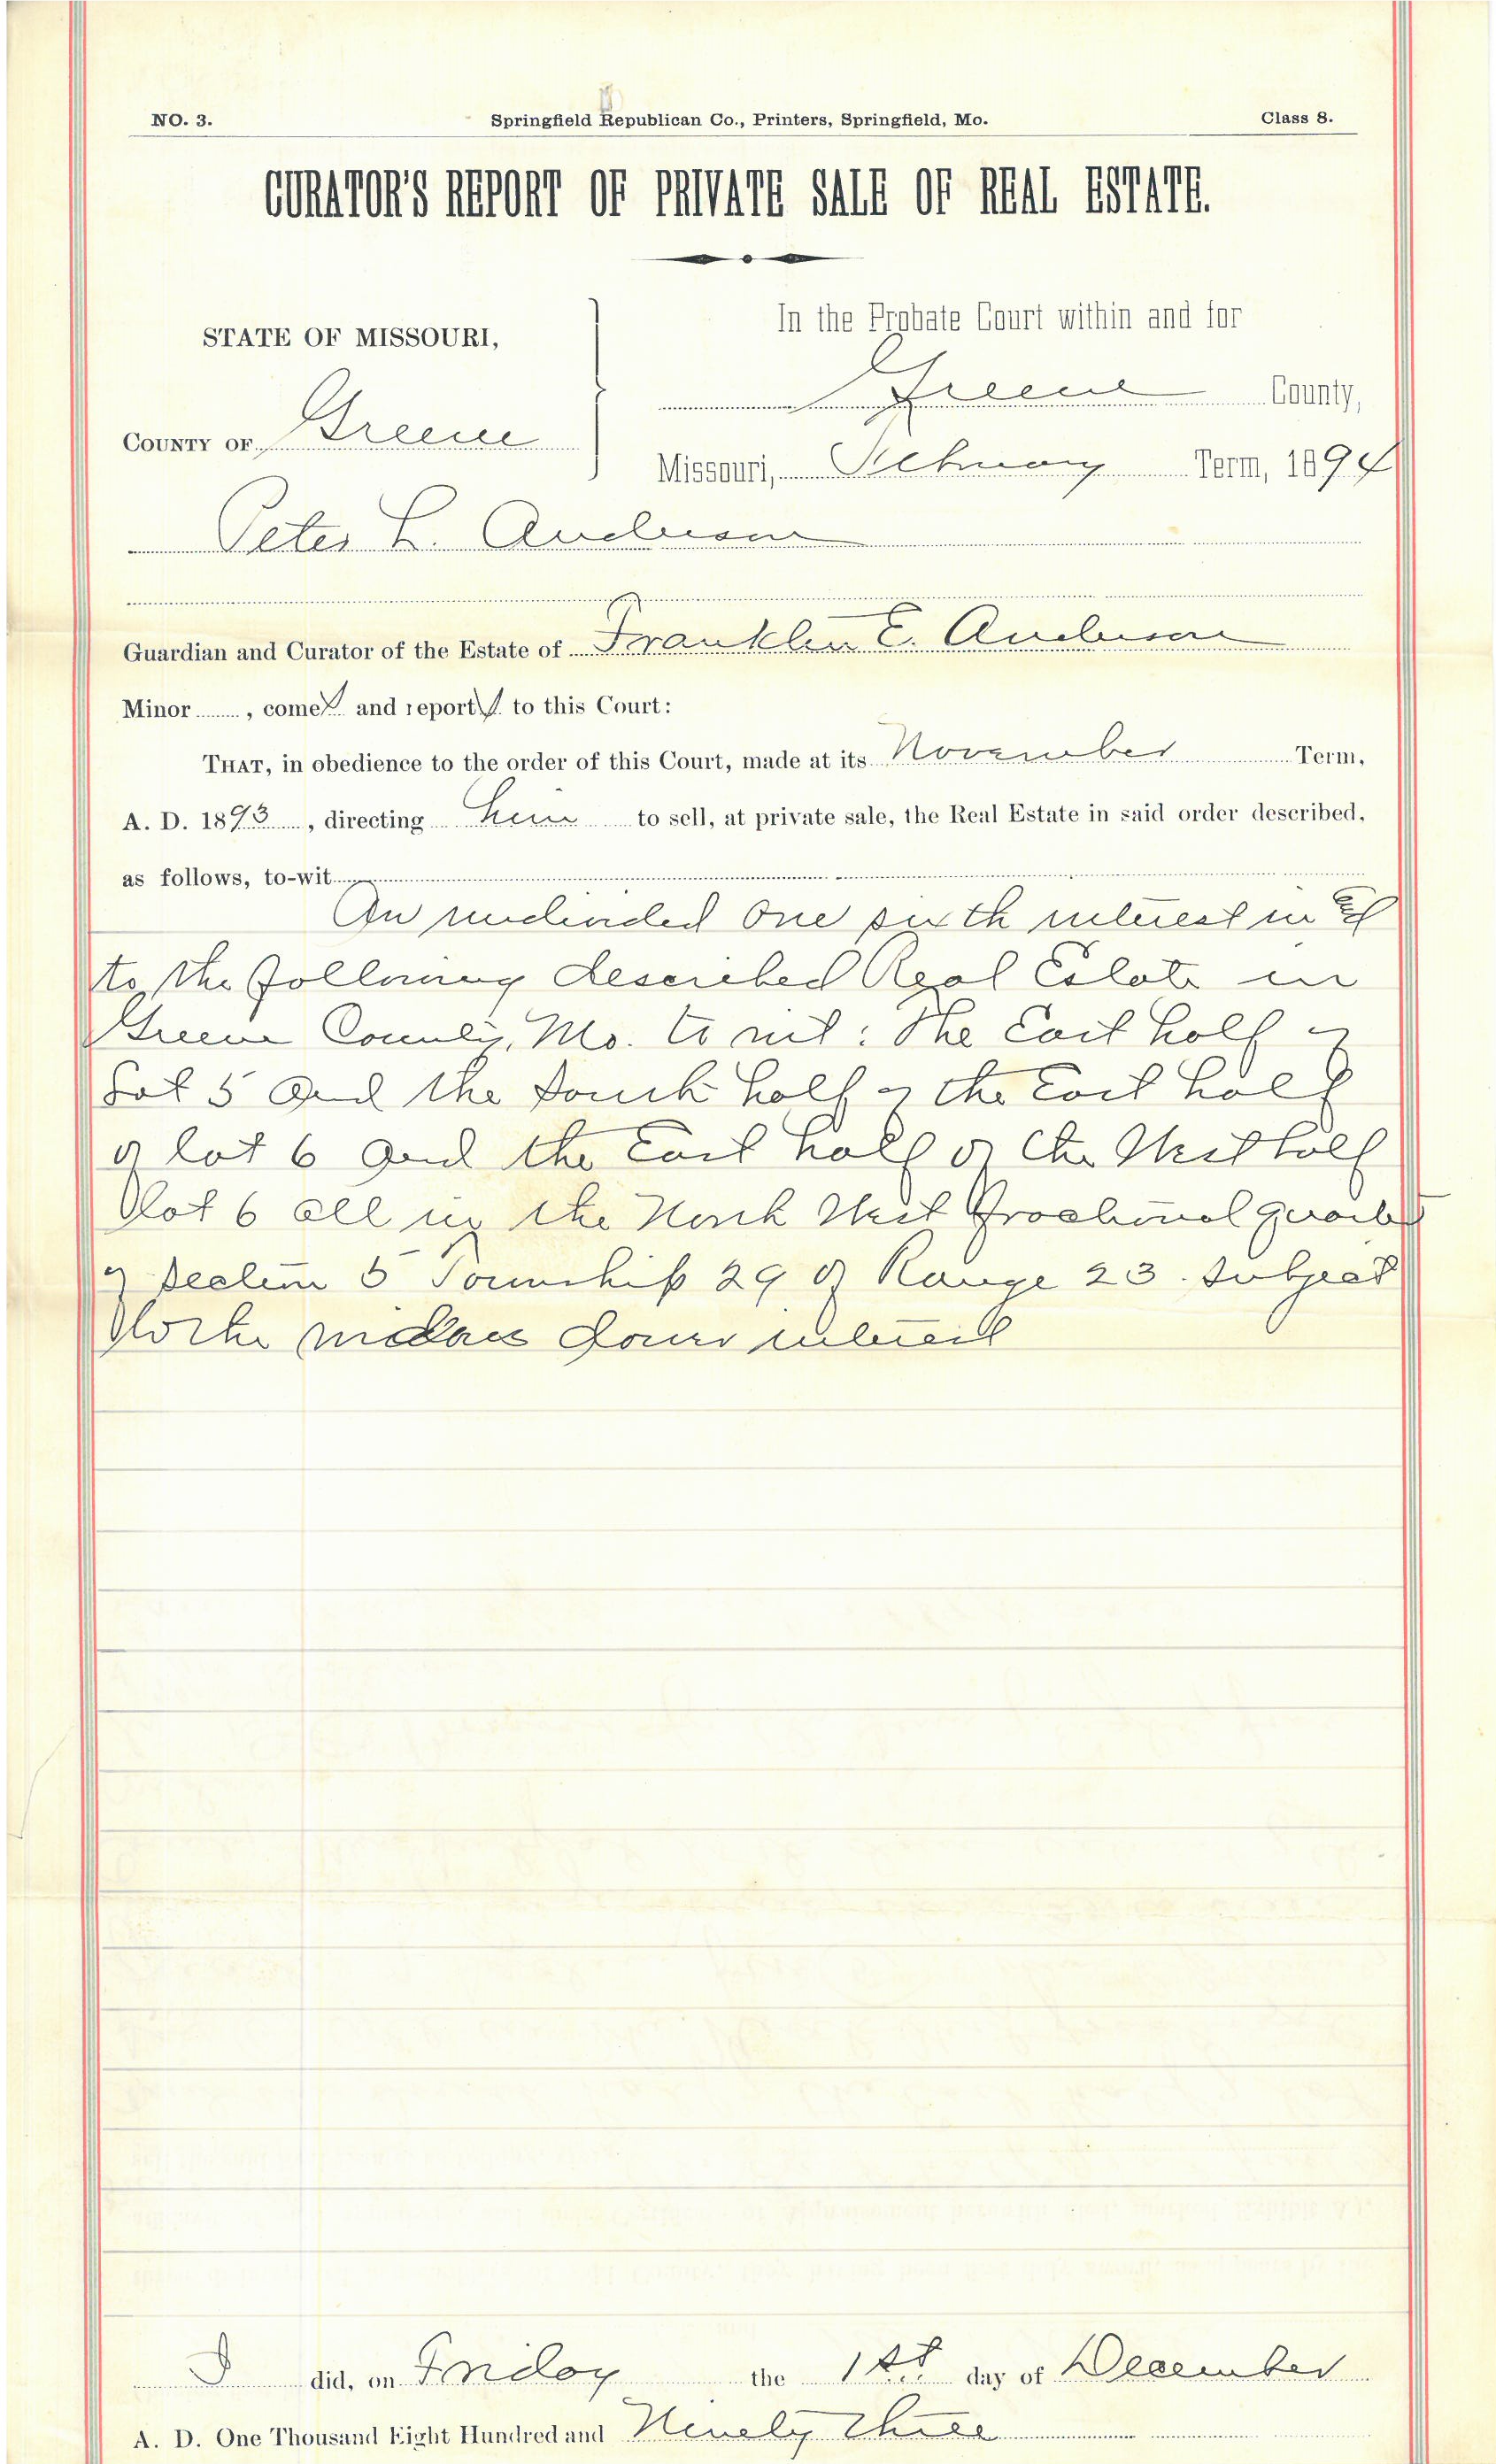 NO. 3. Springfield Republican Co., Printers, Springfield, Mo. Class 8.
CURATOR'S REPORT OF PRIVATE SALE OF REAL ESTATE.
STATE OF MISSOURI,
COUNTY OF Greene
In the Probate Court within and for
Greene County,
Missouri, February Term, 1894
Peter L. Anderson
Guardian and Curator of the Estate of Franklin E. Anderson
Minor , comes and reports to this Court:
THAT, in obedience to the order of this Court, made at its November Term,
A. D. 1893 , directing him to sell, at private sale, the Real Estate in said order described,
as follows, to-wit
An undivided One sixth interest in &
to the following described Real Estate in
Greene County, Mo. to wit: The East half of
Lot 5 and the South half of the East half
of lot 6 and the East half of the West half
of lot 6 all in the North West fractional quarter
of Section 5 Township 29 of Range 23. subject
to the widows dower interest
I did, on Friday the 1st day of December
A. D. One Thousand Eight Hundred and Ninety three